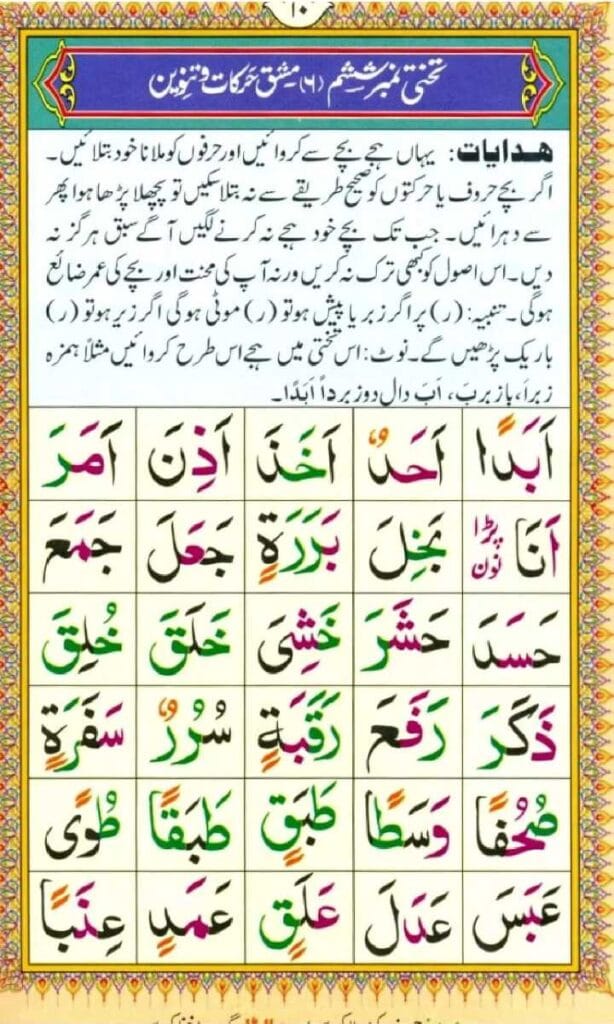 ۱۰
تختی نمبر ششم (۶) مشق حرکات و تنوین
ھدایات: یہاں ہجے بچے سے کروائیں اور حرفوں کو ملانا خود بتلائیں۔
اگر بچے حروف یا حرکتوں کو صحیح طریقے سے نہ بتلا سکیں تو پچھلا پڑھا ہوا پھر
سے دہرائیں۔ جب تک بچے خود ہجے نہ کرنے لگیں آگے سبق ہرگز نہ
دیں۔ اس اصول کو کبھی ترک نہ کریں ورنہ آپ کی محنت اور بچے کی عمر ضائع
ہوگی۔ تنبیہ: (ر) پر اگر زبر یا پیش ہو تو (ر) موٹی ہوگی اگر زیر ہو تو (ر)
باریک پڑھیں گے۔ نوٹ: اس تختی میں ہجے اس طرح کروائیں مثلاً ہمزہ
زبر اَ، با زبر بَ، اَبَ دال دو زبر داً اَبَدًا۔
اَبَدًا اَحَدٌ اَخَذَ اَذِنَ اَمَرَ
اَنَا پڑا نون بَخِلَ بَرَرَةٍ جَعَلَ جَمَعَ
حَسَدَ حَشَرَ خَشِىَ خَلَقَ خُلِقَ
ذَكَرَ رَفَعَ رَقَبَةٍ سُرُرٌ سَفَرَةٍ
صُحُفًا وَسَطًا طَبَقٍ طَبَقًا طُوًى
عَبَسَ عَدَلَ عَلَقٍ عَمَدٍ عِنَبًا